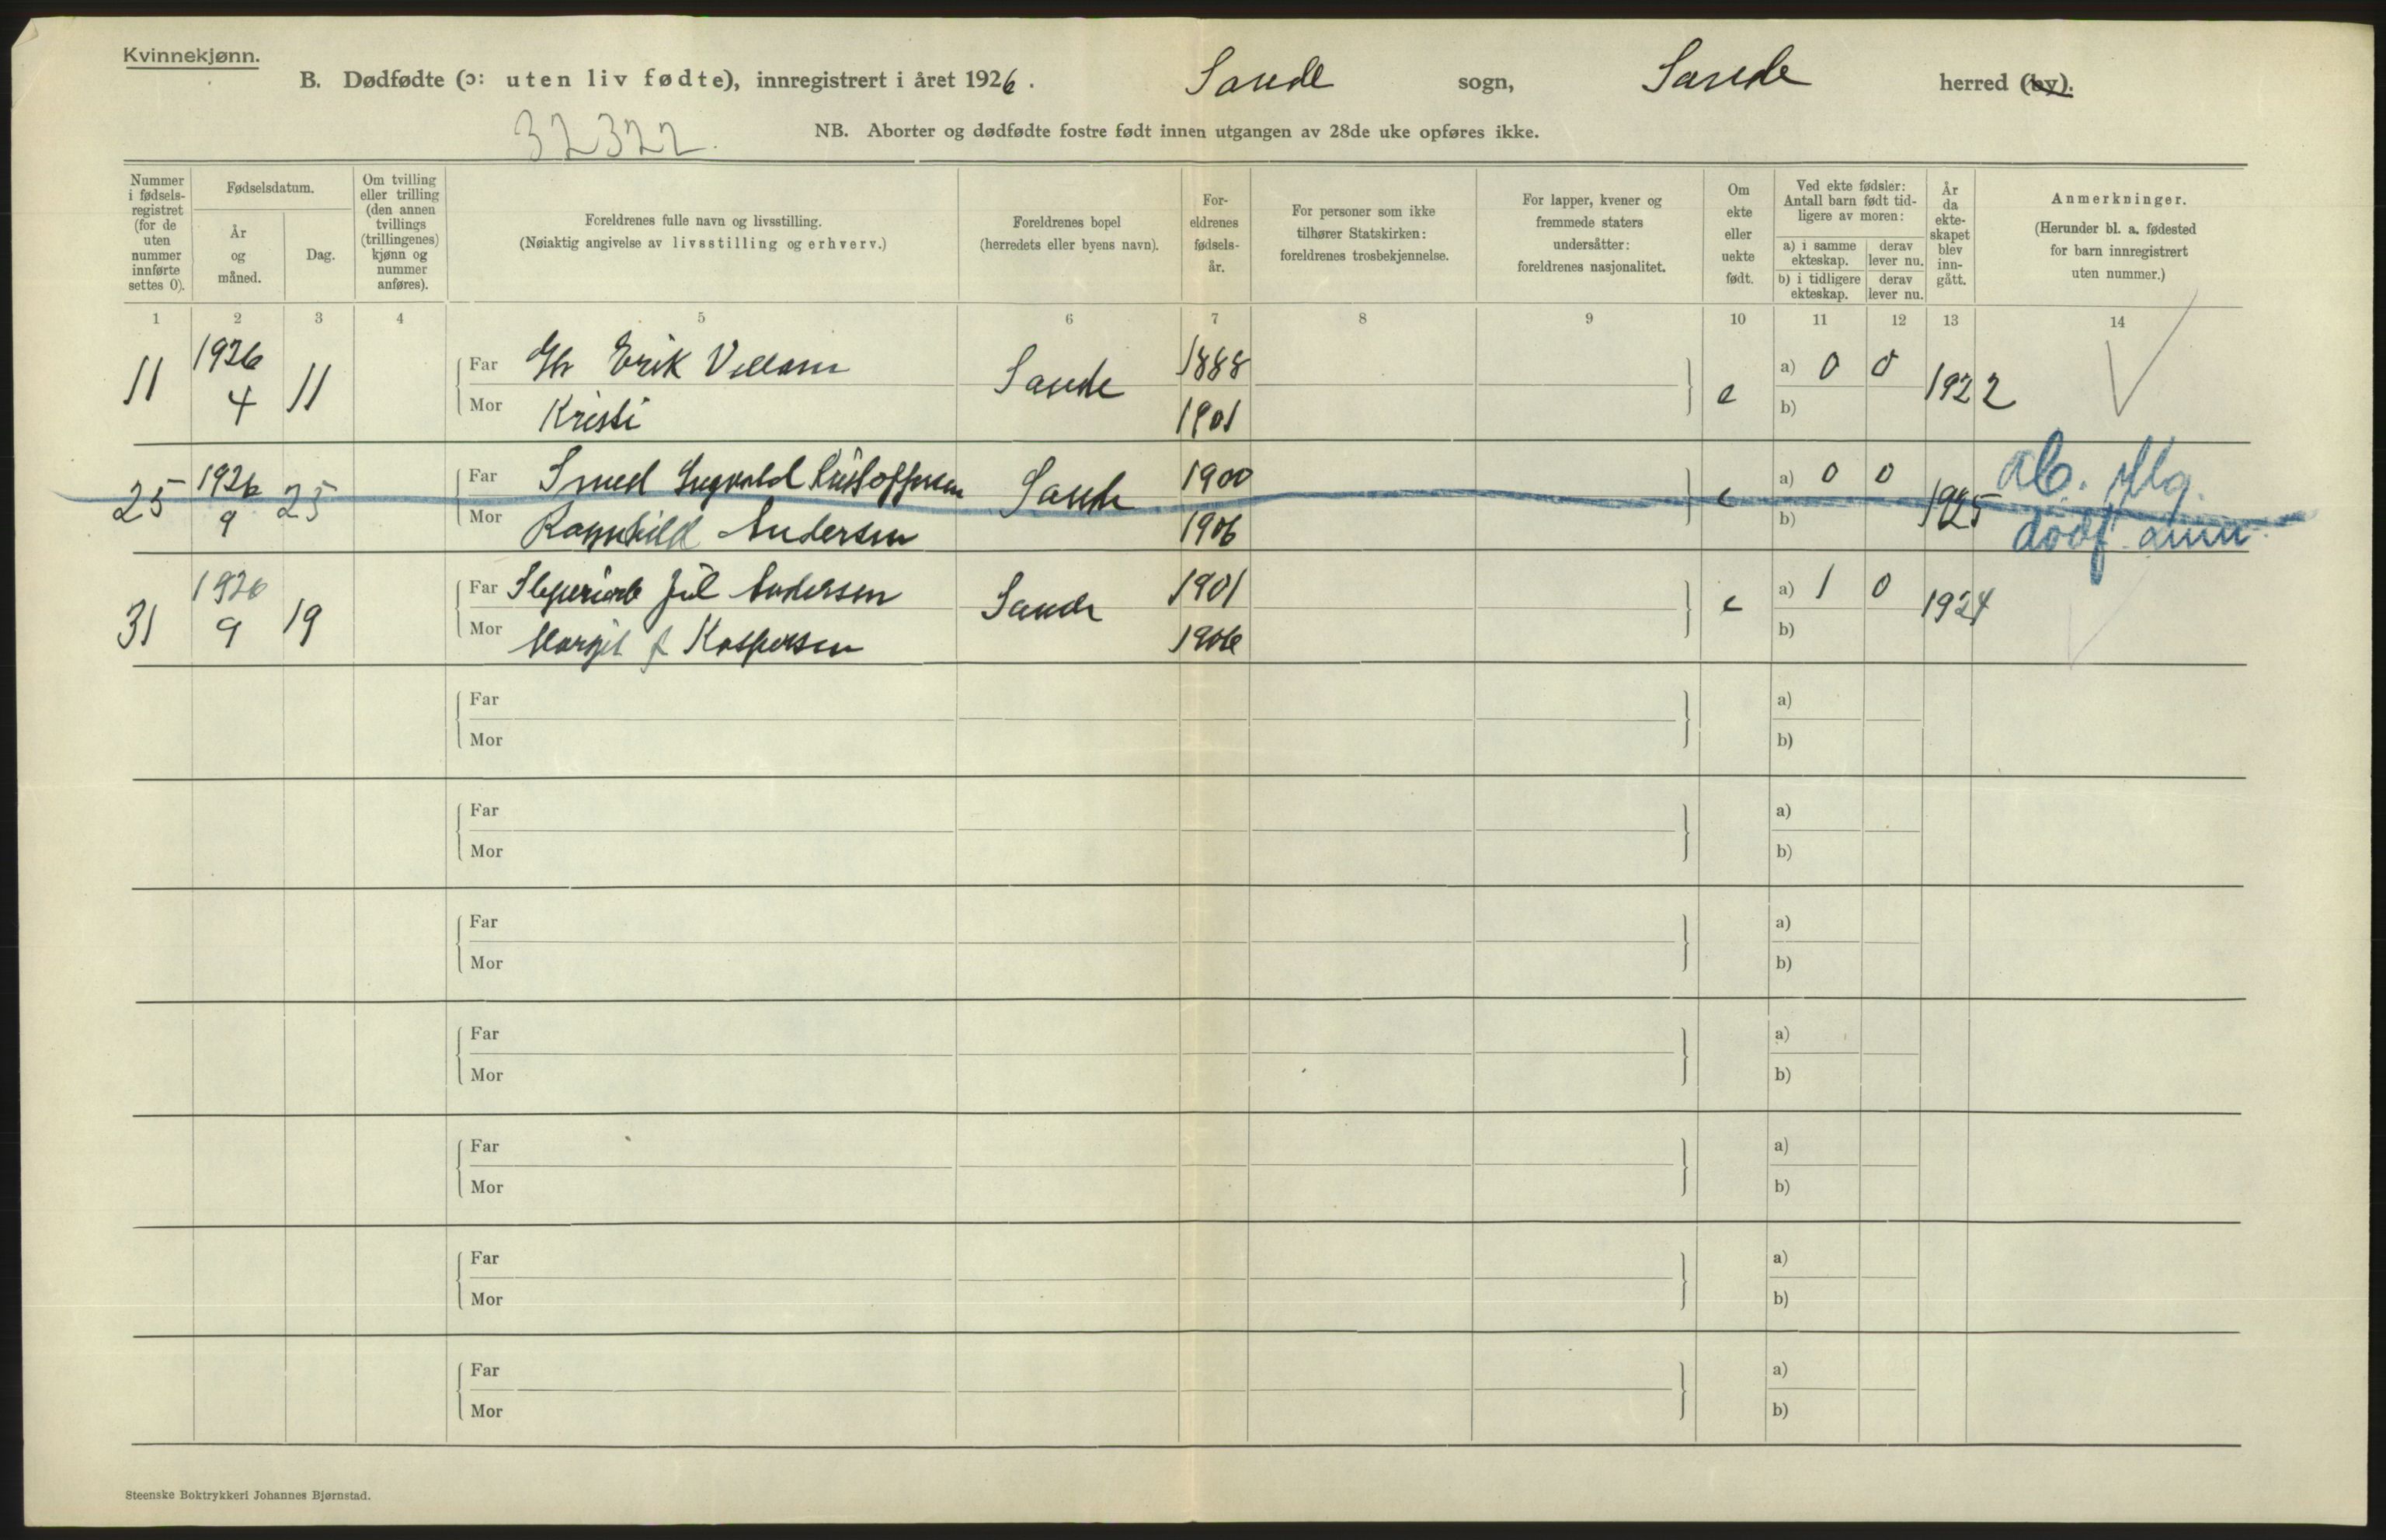 Kvinnekjønn.
B. Dødfødte (ɔ: uten liv fødte), innregistrert i året 1926. Sande sogn, Sande herred (by).
32322.
NB. Aborter og dødfødte fostre født innen utgangen av 28de uke opføres ikke.
Nummer i fødsels-registret (for de uten nummer innførte settes 0).
Fødselsdatum.
År og måned.
Dag.
Om tvilling eller trilling (den annen tvillings (trillingenes) kjønn og nummer anføres).
Foreldrenes fulle navn og livsstilling.
(Nøiaktig angivelse av livsstilling og erhverv.)
Foreldrenes bopel
(herredets eller byens navn).
For-eldrenes fødsels-år.
For personer som ikke tilhører Statskirken: foreldrenes trosbekjennelse.
For lapper, kvener og fremmede staters undersåtter: foreldrenes nasjonalitet.
Om ekte eller uekte født.
Ved ekte fødsler: Antall barn født tid-ligere av moren:
a) i samme ekteskap. derav lever nu.
b) i tidligere ekteskap. derav lever nu.
År da ekte-skapet blev inn-gått.
Anmerkninger.
(Herunder bl. a. fødested for barn innregistrert uten nummer.)
1 2 3 4 5 6 7 8 9 10 11 12 13 14
11 1926 4 11 Far Erik Sande 1888 e a) 0 0 1922
Mor Kristi 1901 b)
25 1926 9 25 Far Smed Ingvald Kristoffersen Sande 1900 e a) 0 0 1925 ab.
Mor Ragnhild Andersen 1906 b) dødf.
31 1926 9 19 Far Andersen Sande 1901 e a) 1 0 1924
Mor Margit f Kaspersen 1906 b)
Far a)
Mor b)
Far a)
Mor b)
Far a)
Mor b)
Far a)
Mor b)
Far a)
Mor b)
Far a)
Mor b)
Far a)
Mor b)
Steenske Boktrykkeri Johannes Bjørnstad.